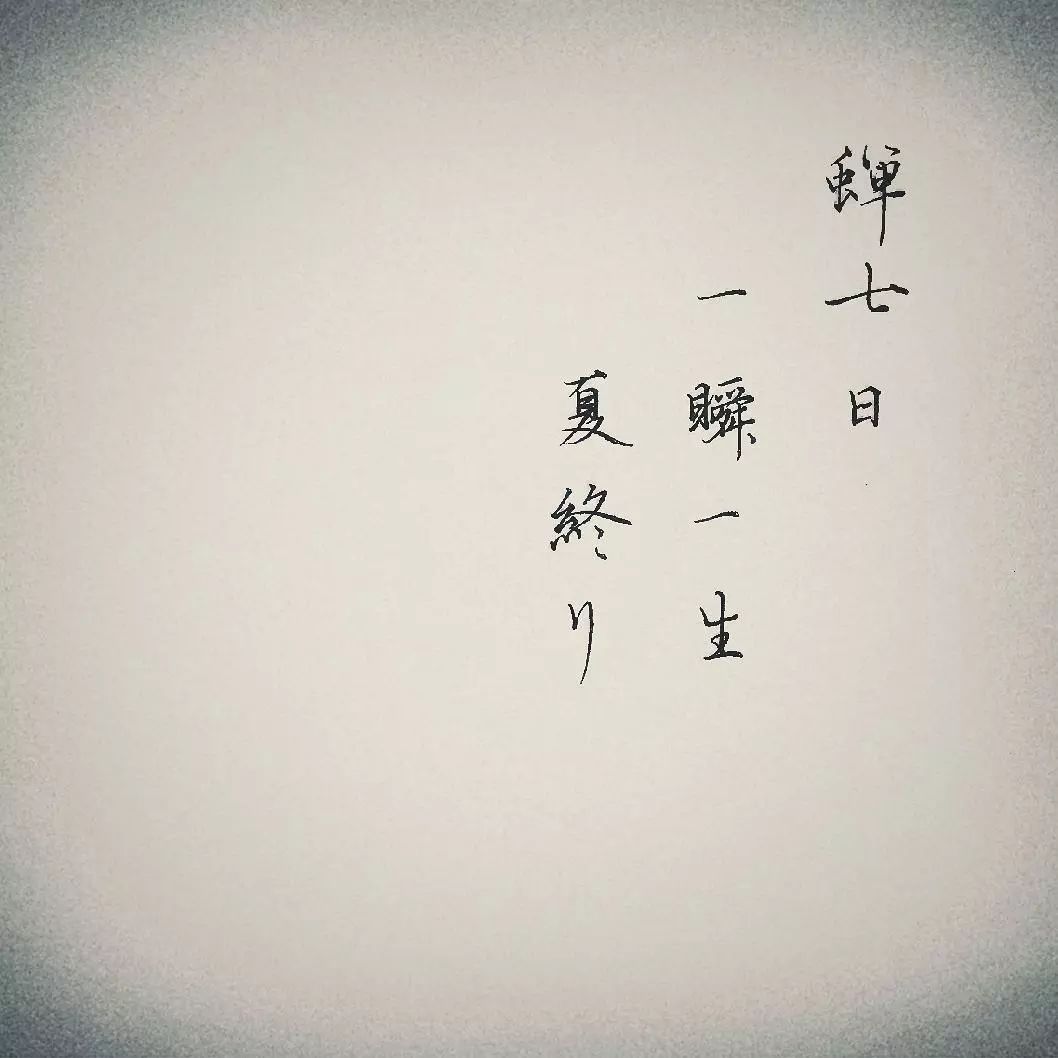 蝉七日
一瞬一生
夏終り